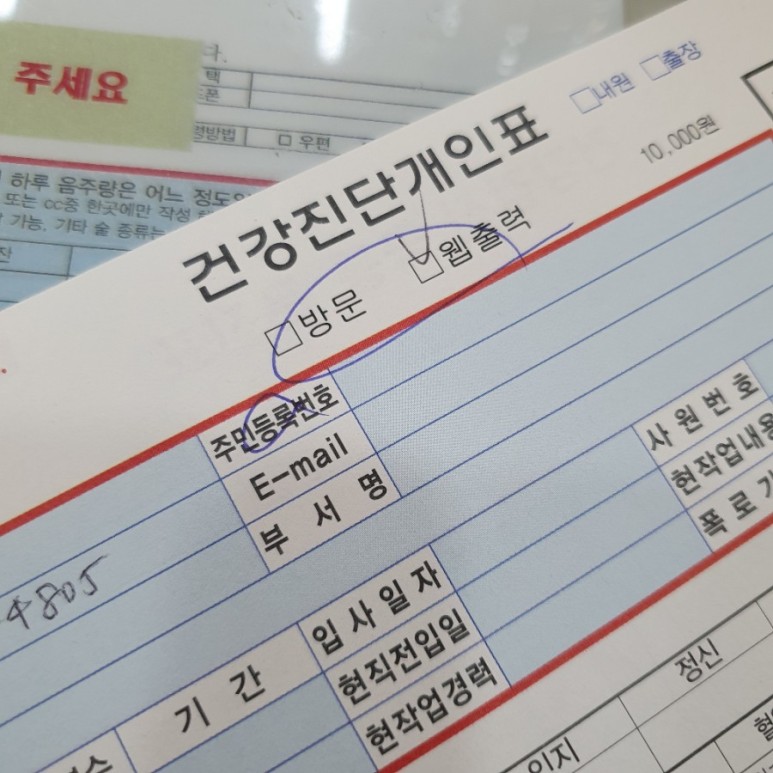 주세요
다.
택
폰
방법
□ 우편
하루 음주량은 어느 정도
또는 cc중 한곳에만 작성
가능, 기타 술 종류는
□내원 □출장
건강진단개인표
10,000원
□방문 □웹출력
주민등록번호
E-mail
부 서 명
사 원 번 호
현작업내용
폭 로 기
4805
기 간
입 사 일 자
현직전입일
현작업경력
정신
인지